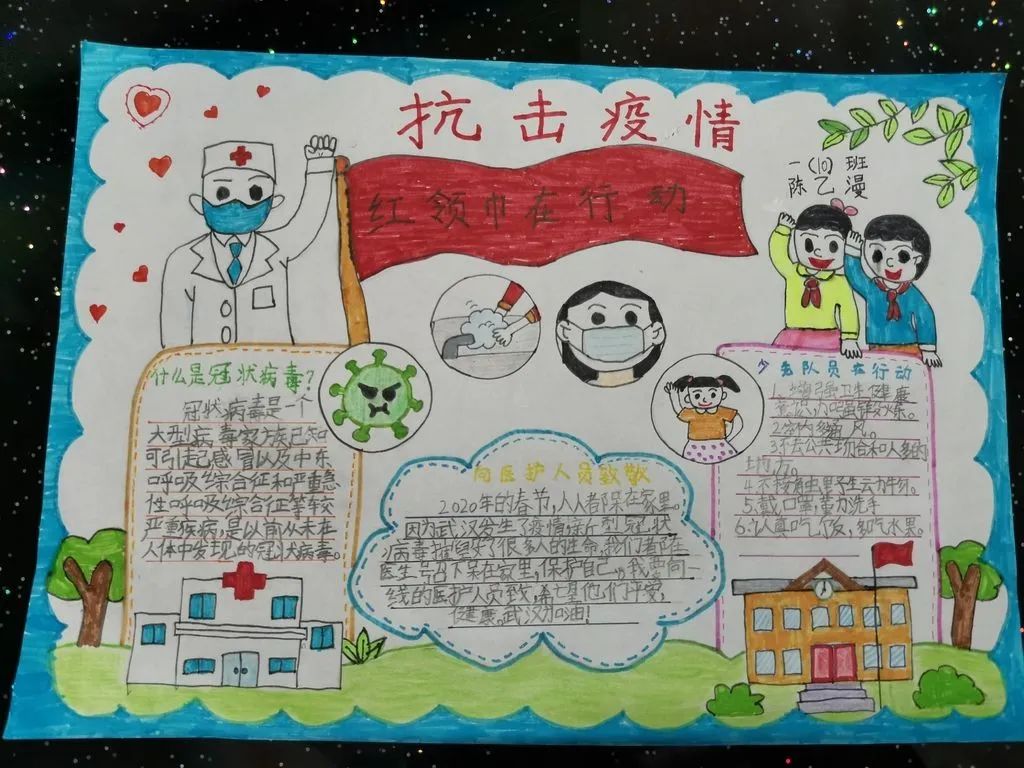 抗击疫情
一(10)班
陈乙漫
红领巾在行动
什么是冠状病毒?
冠状病毒是一个
大型病毒家族已知
可引起感冒以及中东
呼吸综合征和严重急
性呼吸综合征等较
严重疾病,是以前从未在
人体中发现的冠状病毒。
向医护人员致敬
2020年的春节,人人都呆在家里。
因为武汉发生了疫情,新型冠状
病毒摧毁了很多人的生命,我们都在
医生号召下呆在家里,保护自己。我要向一
线的医护人员致,希望他们平安,
健康。武汉加油!
少先队员在行动
1.增强卫生健康
意识,加强锻炼。
2.室内通风。
3.不去公共场合和人多的
地方。
4.不接触野生动物。
5.戴口罩,勤洗手
6.认真吃饭,多吃水果。